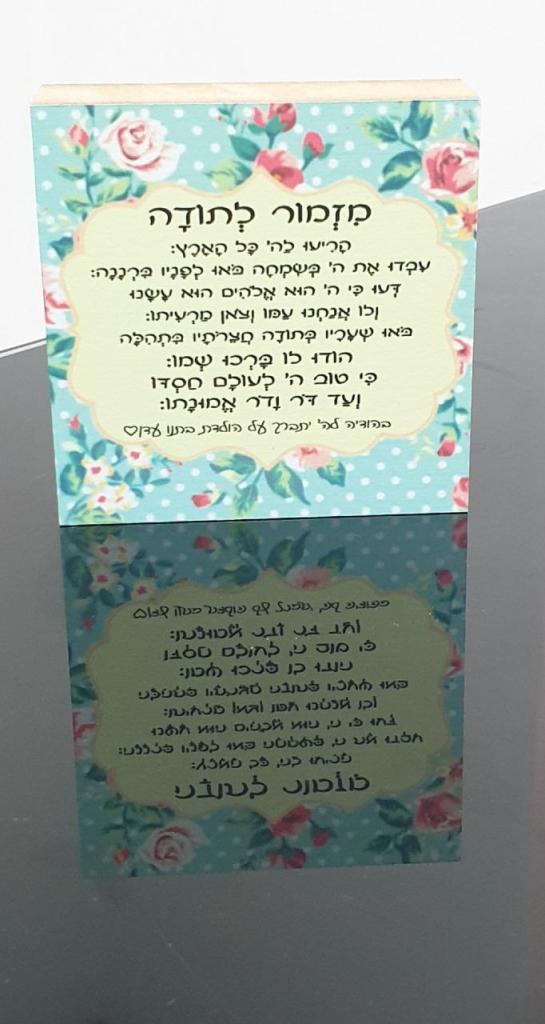 מִזְמוֹר לְתוֹדָה
הָרִיעוּ לַה' כָּל הָאָרֶץ:
עִבְדוּ אֶת ה' בְּשִׂמְחָה בֹּאוּ לְפָנָיו בִּרְנָנָה:
דְּעוּ כִּי ה' הוּא אֱלֹהִים הוּא עָשָׂנוּ
וְלוֹ אֲנַחְנוּ עַמּוֹ וְצֹאן מַרְעִיתוֹ:
בֹּאוּ שְׁעָרָיו בְּתוֹדָה חֲצֵרֹתָיו בִּתְהִלָּה
הוֹדוּ לוֹ בָּרְכוּ שְׁמוֹ:
כִּי טוֹב ה' לְעוֹלָם חַסְדּוֹ
וְעַד דֹּר וָדֹר אֱמוּנָתוֹ:
בהודיה לה' יתברך על הולדת בתנו עדן♡